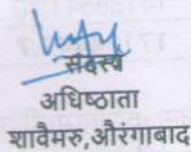 सदस्य
अधिष्ठाता
शावैमरु,औरंगाबाद